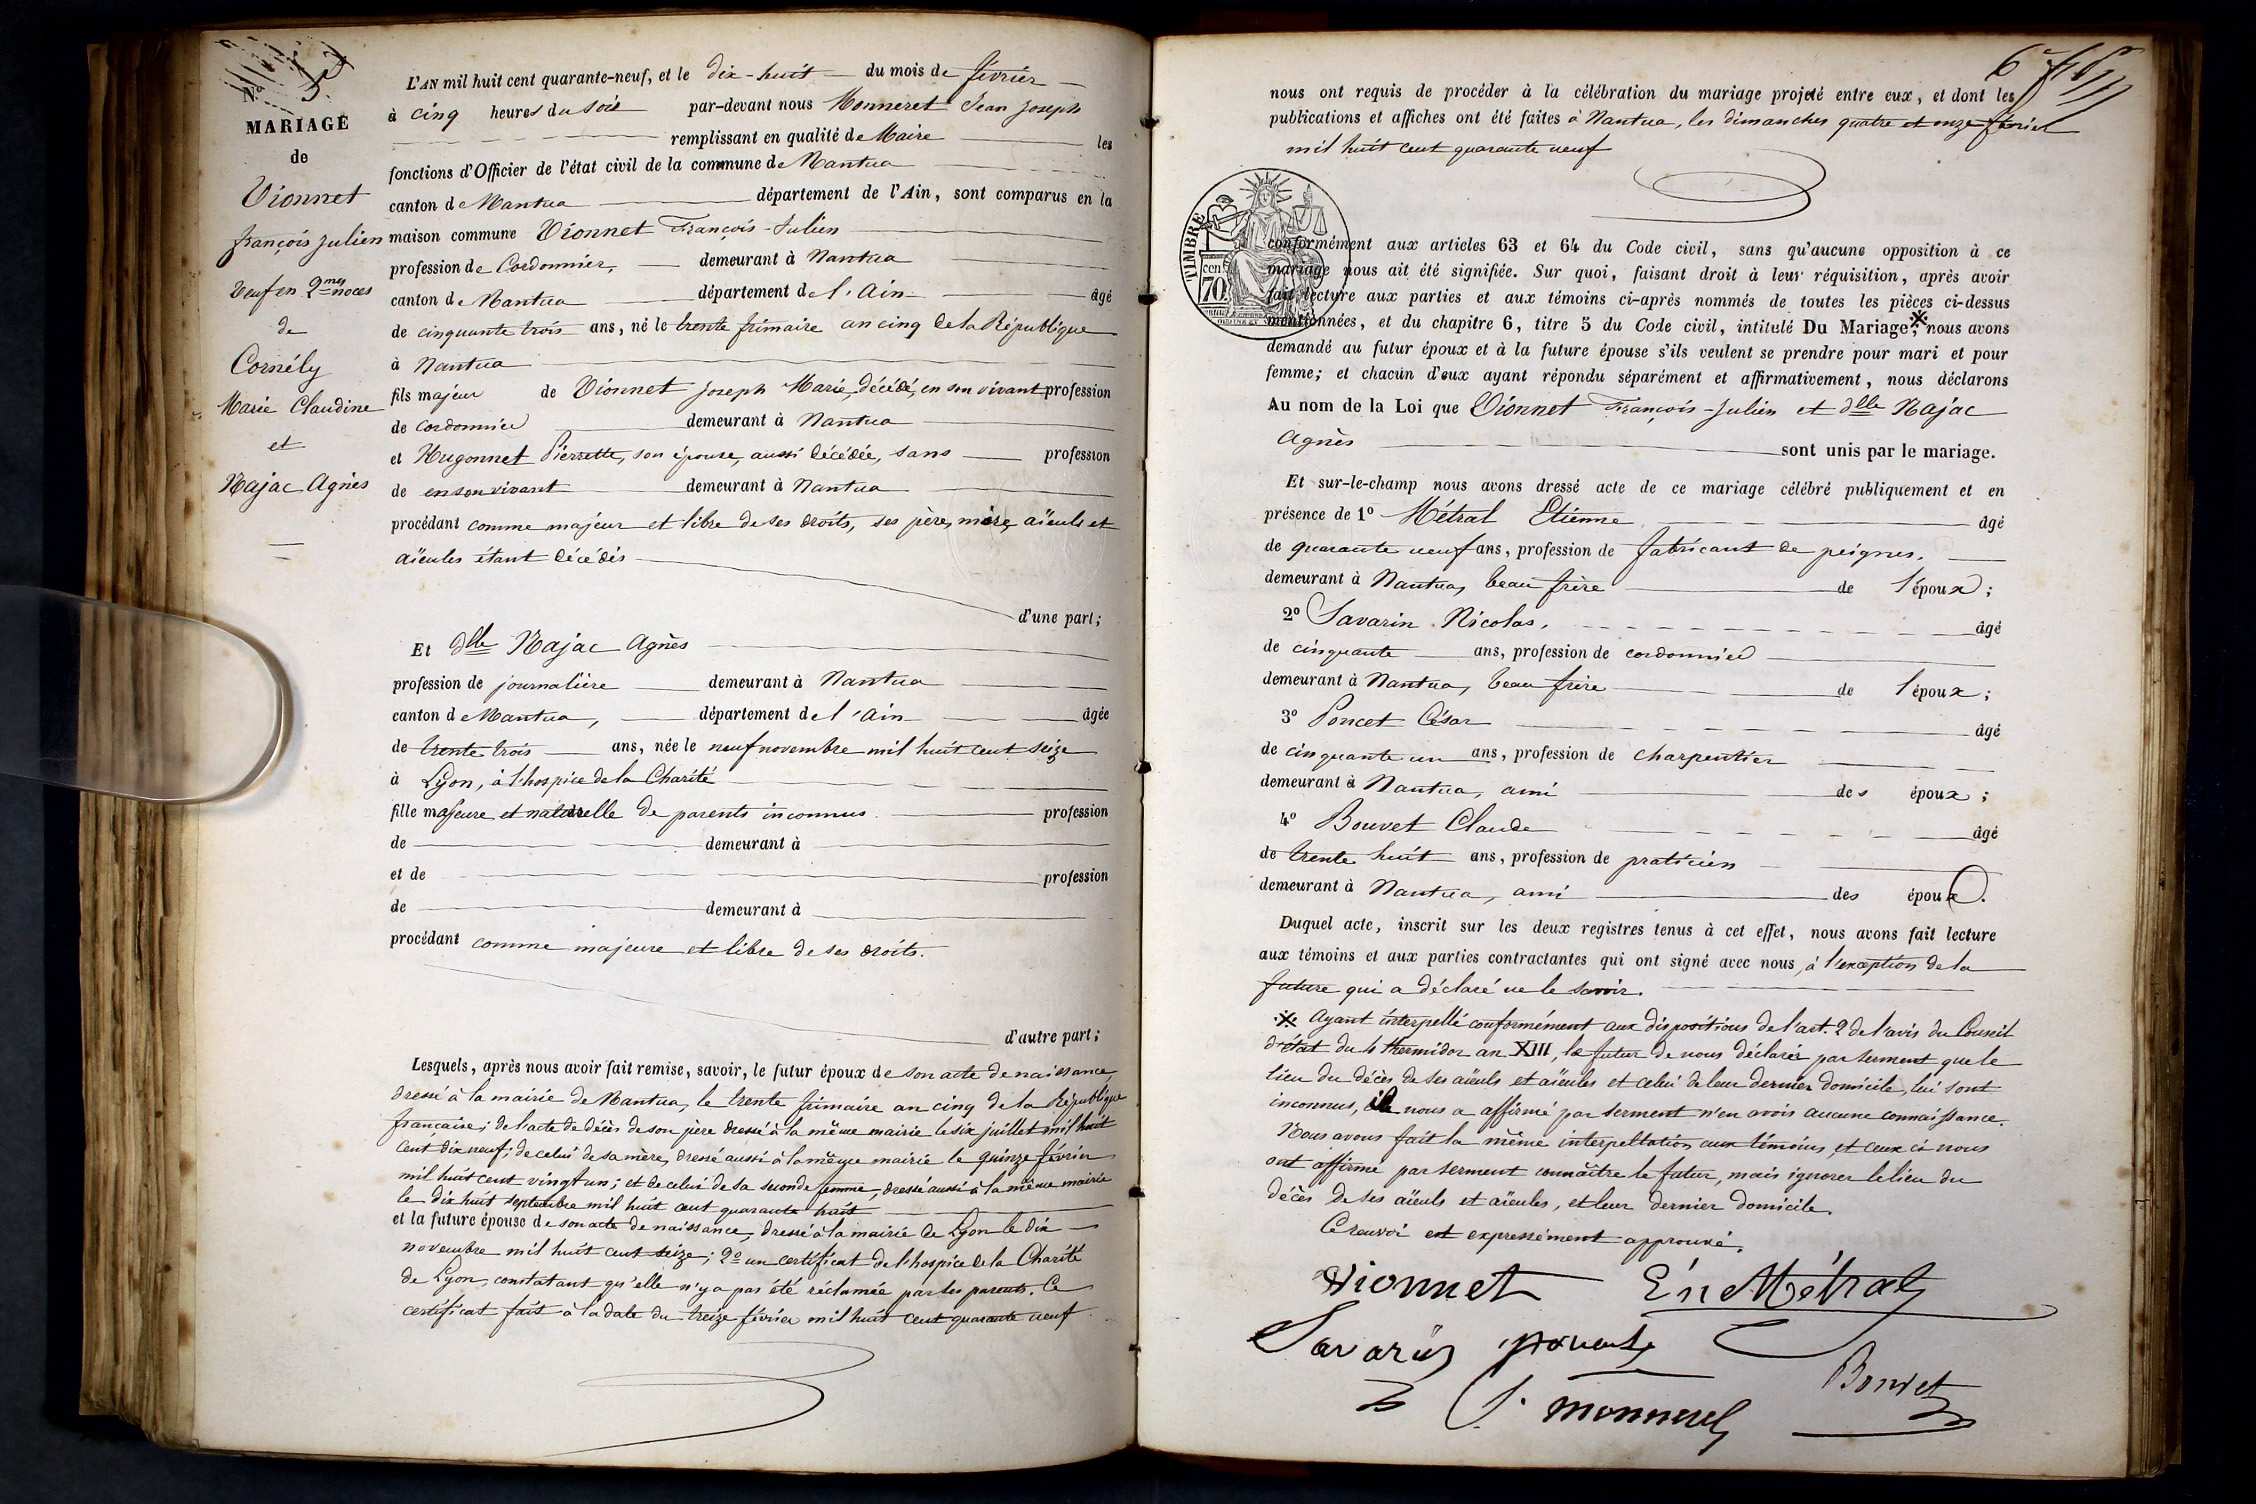 N° 5.
MARIAGE
de
Vionnet
françois julien
Veuf en 2mes noces
de
Cornély
Marie Claudine
et
Najac Agnès
L'AN mil huit cent quarante-neuf, et le dix-huit du mois de février
à cinq heures du soir par-devant nous Monneret Jean Joseph
remplissant en qualité de Maire les
fonctions d'Officier de l'état civil de la commune de Nantua
canton de Nantua département de l'Ain, sont comparus en la
maison commune Vionnet François-Julien
profession de Cordonnier, demeurant à Nantua
canton de Nantua département de l'Ain âgé
de cinquante trois ans, né le trente frimaire an cinq de la République
à Nantua
fils majeur de Vionnet Joseph Marie, décédé, en son vivant profession
de cordonnier demeurant à Nantua
et Hugonnet Pierrette, son épouse, aussi décédée, sans profession
de en son vivant demeurant à Nantua
procédant comme majeur et libre de ses droits, ses père, mère, aïeuls et
aïeules étant décédés
d'une part;
Et dlle Najac Agnès
profession de journalière demeurant à Nantua
canton de Nantua, département de l'Ain âgée
de trente trois ans, née le neuf novembre mil huit cent seize
à Lyon, à l'hospice de la Charité
fille majeure et naturelle de parents inconnus profession
de demeurant à
et de profession
de demeurant à
procédant comme majeure et libre de ses droits.
d'autre part;
Lesquels, après nous avoir fait remise, savoir, le futur époux de son acte de naissance,
dressé à la mairie de Nantua, le trente frimaire an cinq de la République
française; de l'acte de décès de son père dressé à la même mairie le six juillet mil huit
cent dix neuf; de celui de sa mère, dressé aussi à la même mairie le quinze février
mil huit cent vingt un; et de celui de sa seconde femme, dressé aussi à la même mairie
le dix huit septembre mil huit cent quarante huit
et la future épouse de son acte de naissance, dressé à la mairie de Lyon le dix
novembre mil huit cent seize; 2° un certificat de l'hospice de la Charité
de Lyon, constatant qu'elle n'y a pas été réclamée par les parents. Ce
certificat fait à la date du treize février mil huit cent quarante neuf
nous ont requis de procéder à la célébration du mariage projeté entre eux, et dont les
publications et affiches ont été faites à Nantua, les dimanches quatre et onze février
mil huit cent quarante neuf
TIMBRE
70
conformément aux articles 63 et 64 du Code civil, sans qu'aucune opposition à ce
mariage nous ait été signifiée. Sur quoi, faisant droit à leur réquisition, après avoir
fait lecture aux parties et aux témoins ci-après nommés de toutes les pièces ci-dessus
mentionnées, et du chapitre 6, titre 5 du Code civil, intitulé Du Mariage; nous avons
demandé au futur époux et à la future épouse s'ils veulent se prendre pour mari et pour
femme; et chacun d'eux ayant répondu séparément et affirmativement, nous déclarons
Au nom de la Loi que Vionnet François-Julien et dlle Najac
Agnès sont unis par le mariage.
Et sur-le-champ nous avons dressé acte de ce mariage célébré publiquement et en
présence de 1° Métral Etienne âgé
de quarante neuf ans, profession de fabricant de peignes,
demeurant à Nantua, beau frère de l'époux;
2° Savarin Nicolas, âgé
de cinquante ans, profession de cordonnier
demeurant à Nantua, beau frère de l'époux;
3° Poncet César âgé
de cinquante un ans, profession de charpentier
demeurant à Nantua, ami des époux;
4° Bouvet Claude âgé
de trente huit ans, profession de praticien
demeurant à Nantua, ami des époux.
Duquel acte, inscrit sur les deux registres tenus à cet effet, nous avons fait lecture
aux témoins et aux parties contractantes qui ont signé avec nous, à l'exception de la
future qui a déclaré ne le savoir.
※ Ayant interpellé conformément aux dispositions de l'art. 2 de l'avis du Conseil
d'état du 4 thermidor an XIII, le futur de nous déclarer par serment que le
lieu du décès de ses aïeuls et aïeules et celui de leur dernier domicile, lui sont
inconnus, il nous a affirmé par serment n'en avoir aucune connaissance.
Nous avons fait la même interpellation aux témoins, et ceux ci nous
ont affirmé par serment connaître le futur, mais ignorer le lieu du
décès de ses aïeuls et aïeules, et leur dernier domicile.
Ce renvoi est expressément approuvé.
Vionnet Én Métral
Savarin poncet
Bouvet
J. monneret